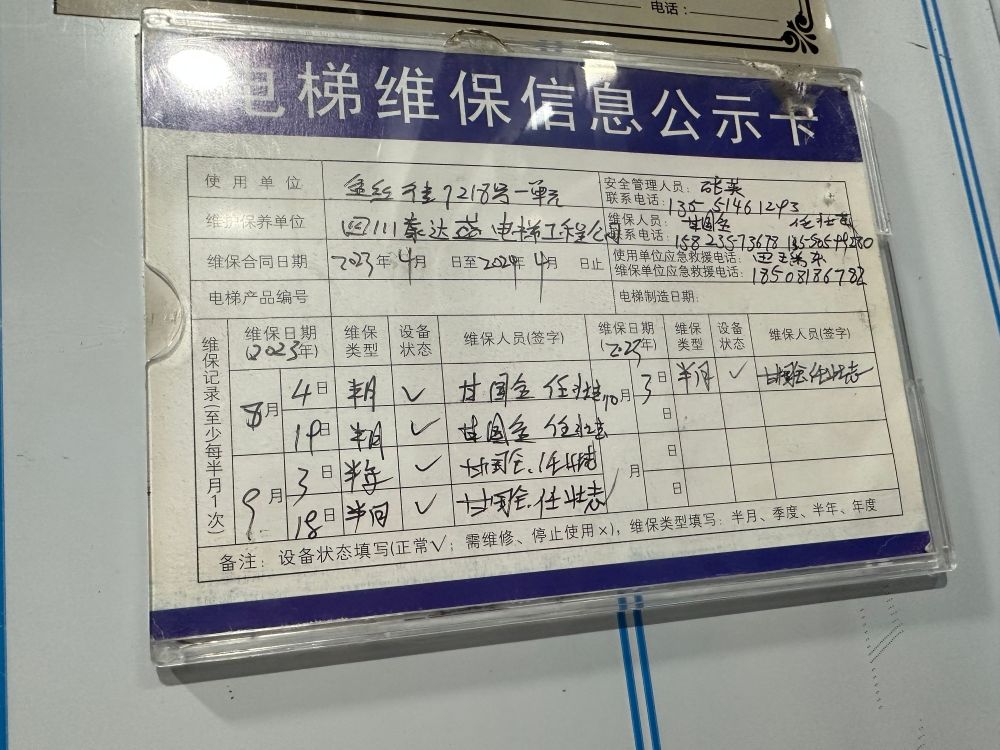 电话：
电梯维保信息公示卡
使用单位 金丝街9218号一单元 安全管理人员：
联系电话：13551461293
维护保养单位 四川泰达 电梯工程公司 维保人员：甘国全
联系电话：15823573678
维保合同日期 2023年4月 日至2024年4月 日止 使用单位应急救援电话：
维保单位应急救援电话：18508186782
电梯产品编号 电梯制造日期：
维保记录(至少每半月1次)
维保日期(2023年) 维保类型 设备状态 维保人员(签字) 维保日期(2023年) 维保类型 设备状态 维保人员(签字)
8月 4日 半月 ✓ 甘国全 任壮志 10月 3日 半月 ✓ 甘国全 任壮志
19日 半月 ✓ 甘国全 任壮志 日
9月 3日 半年 ✓ 甘国全.任壮志 月 日
18日 半月 ✓ 甘国全.任壮志 日
备注：设备状态填写(正常✓；需维修、停止使用×)，维保类型填写：半月、季度、半年、年度